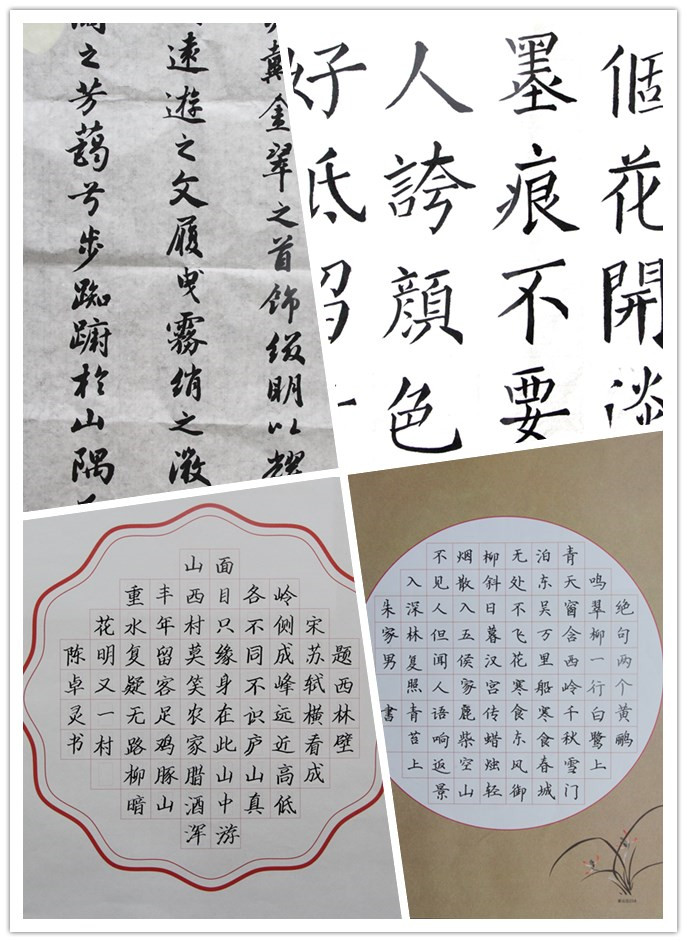 戴金翠之首飾綴明以耀
遠遊之文履曳霧綃之
之芳藹兮步踟躕於山隅
個花開淡
墨痕不要
人誇顏色
好祇留
题西林壁
宋苏轼横看成
岭侧成峰远近高低
各不同不识庐山真
面目只缘身在此山中游
山西村莫笑农家腊酒浑
丰年留客足鸡豚山
重水复疑无路柳暗
花明又一村
陈卓灵书
绝句两个黄鹂
鸣翠柳一行白鹭上
青天窗含西岭千秋雪门
泊东吴万里船寒食春城
无处不飞花寒食东风御
柳斜日暮汉宫传蜡烛轻
烟散入五侯家鹿柴空山
不见人但闻人语响返景
入深林复照青苔上
朱家男書